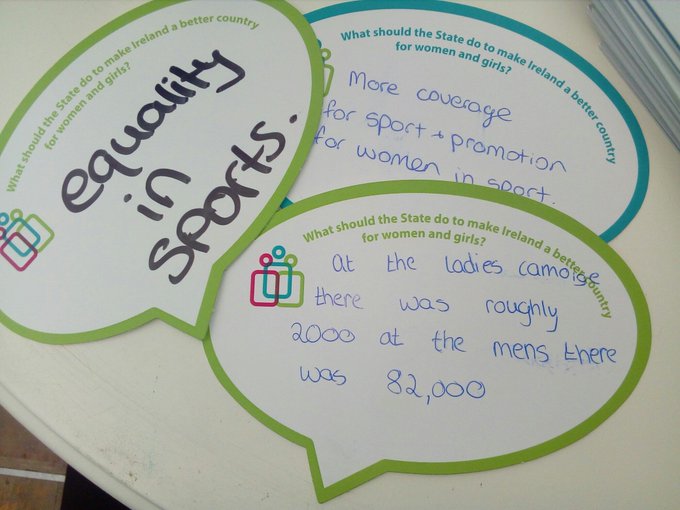 What should the State do to make Ireland a better country
for women and girls?
equality
in
sports.
What should the State do to make Ireland a better country
for women and girls?
More coverage
for sport + promotion
for women in sport.
What should the State do to make Ireland a better country
for women and girls?
at the ladies camoige
there was roughly
2000 at the mens there
was 82,000